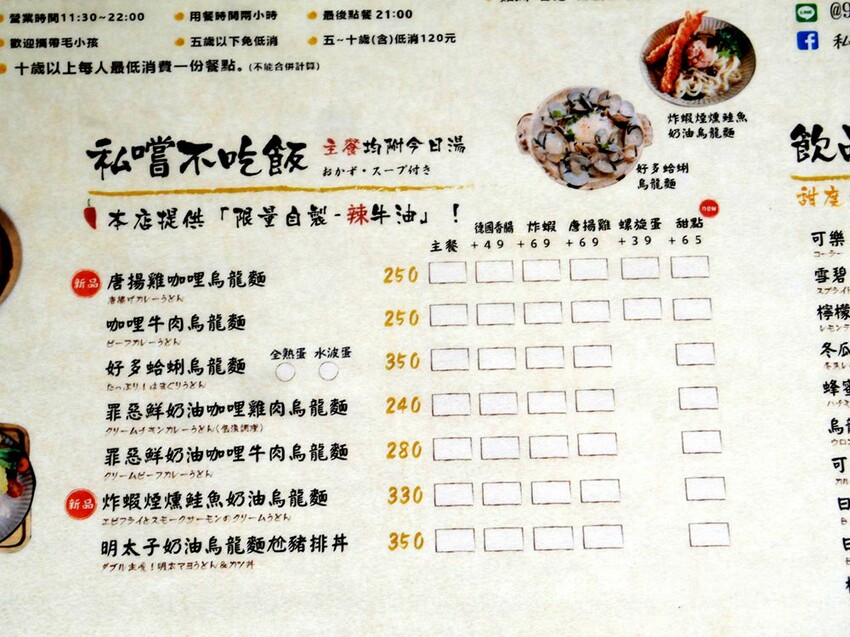 營業時間11:30~22:00
用餐時間兩小時
最後點餐 21:00
@9
歡迎攜帶毛小孩
五歲以下免低消
五~十歲(含)低消120元
私
十歲以上每人最低消費一份餐點。(不能合併計算)
炸蝦煙燻鮭魚
奶油烏龍麵
好多蛤蜊
烏龍麵
私嚐不吃飯
主餐均附今日湯
おかず・スープ付き
飲品
甜度
本店提供「限量自製-辣牛油」!
new
主餐
德國香腸 +49
炸蝦 +69
唐揚雞 +69
螺旋蛋 +39
甜點 +65
新品 唐揚雞咖哩烏龍麵 250
唐揚げカレーうどん
咖哩牛肉烏龍麵 250
ビーフカレーうどん
好多蛤蜊烏龍麵 全熟蛋 水波蛋 350
たっぷり!はまぐりうどん
罪惡鮮奶油咖哩雞肉烏龍麵 240
罪惡鮮奶油咖哩牛肉烏龍麵 280
クリームビーフカレーうどん
新品 炸蝦煙燻鮭魚奶油烏龍麵 330
エビフライとスモークサーモンのクリームうどん
明太子奶油烏龍麵尬豬排丼 350
可樂
コーラー
雪碧
スプライト
檸檬
レモンテ
冬瓜
蜂蜜
烏龍
ウロン
可